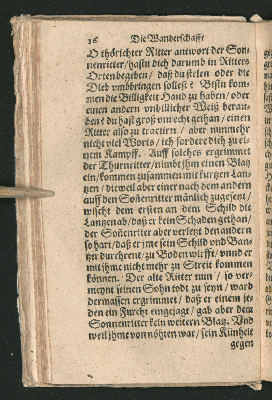 16 Die Wanderschafft
O thörichter Ritter antwort der Son-
nenritter / hastu dich darumb in Ritters
Orten begeben / daß du stelen oder die
Dieb umbbringen sollest? Bistu kom-
men die Billigkeit Hand zu haben / oder
einen andern unbillicher Weiß berau-
ben? du hast groß unrecht gethan / einen
Ritter also zu tractirn / aber nunmehr
nicht viel Worts / ich fordere dich zu ei-
nem Kampff. Auff solches ergrimmet
der Thurnritter / nimbt ihm einen Platz
ein / kommen zusammen mit kurtzen Lan-
tzen / dieweil aber einer nach dem andern
auff den Soñenritter mänlich zugesetzt /
wischt dem ersten an dem Schild die
Lantzen ab / daß er kein Schaden gethan /
der Soñenritter aber verletzt den andern
so hart / daß er jme sein Schild und Pan-
tzer durchrent / zu Boden wirfft / unnd er
mit ihme nicht mehr zu Streit kommen
können. Der alte Ritter nun / so ver-
meynt seinen Sohn todt zu seyn / ward
dermassen ergrimmet / daß er einem je-
den ein Furcht eingejagt / gab aber dem
Sonnenritter kein weitern Platz. Und
weil jhme von nöhten war / sein Künheit
gegen